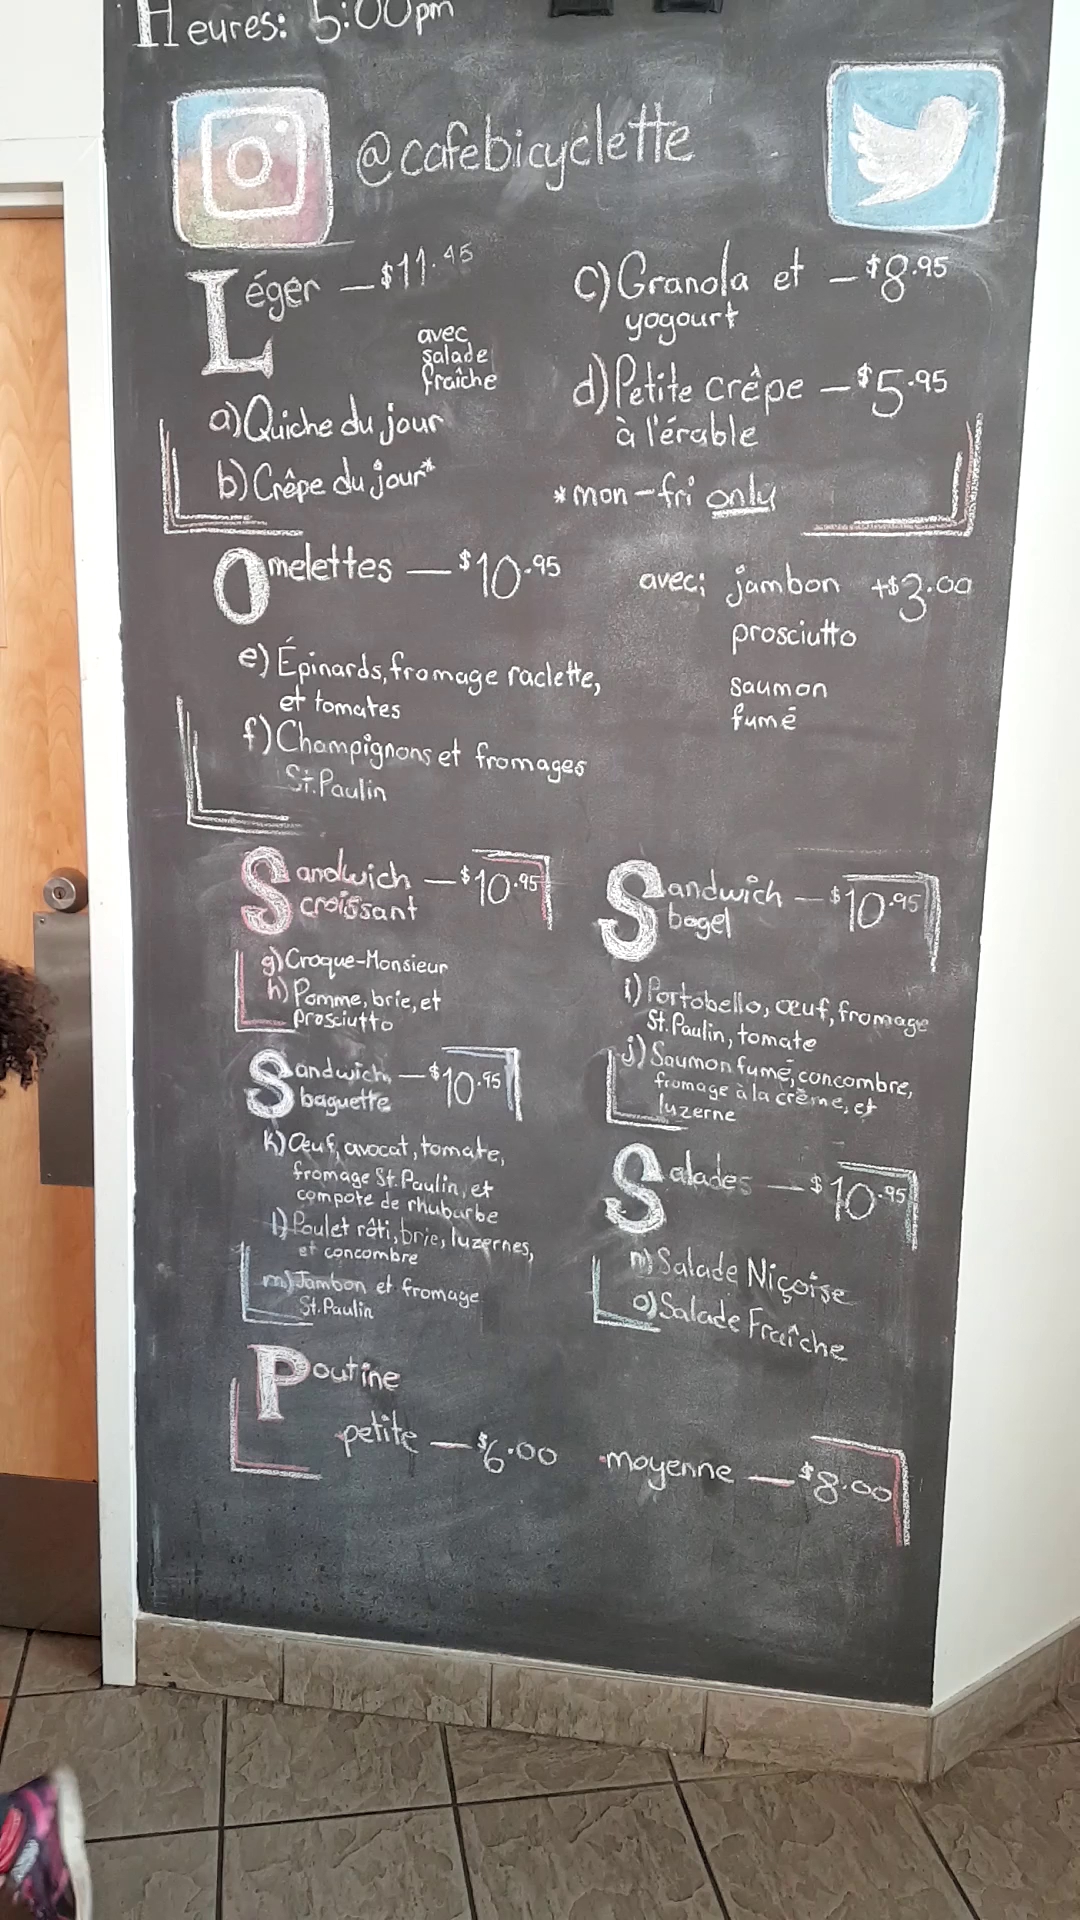 Heures: 5:00pm
@cafebicyclette
Léger — $11.45
avec
salade
fraîche
a) Quiche du jour
b) Crêpe du jour*
c) Granola et — $8.95
yogourt
d) Petite crêpe — $5.95
à l'érable
*mon-fri only
Omelettes — $10.95
e) Épinards, fromage raclette,
et tomates
f) Champignons et fromages
St. Paulin
avec; jambon +$3.00
prosciutto
saumon
fumé
Sandwich — $10.95
croissant
g) Croque-Monsieur
h) Pomme, brie, et
Prosciutto
Sandwich — $10.95
bagel
i) Portobello, œuf, fromage
St. Paulin, tomate
j) Saumon fumé, concombre,
fromage à la crème, et
luzerne
Sandwich — $10.95
baguette
k) Œuf, avocat, tomate,
fromage St. Paulin, et
compote de rhubarbe
l) Poulet rôti, brie, luzernes,
et concombre
m) Jambon et fromage
St. Paulin
Salades — $10.95
n) Salade Niçoise
o) Salade Fraîche
Poutine
petite — $6.00 moyenne — $8.00